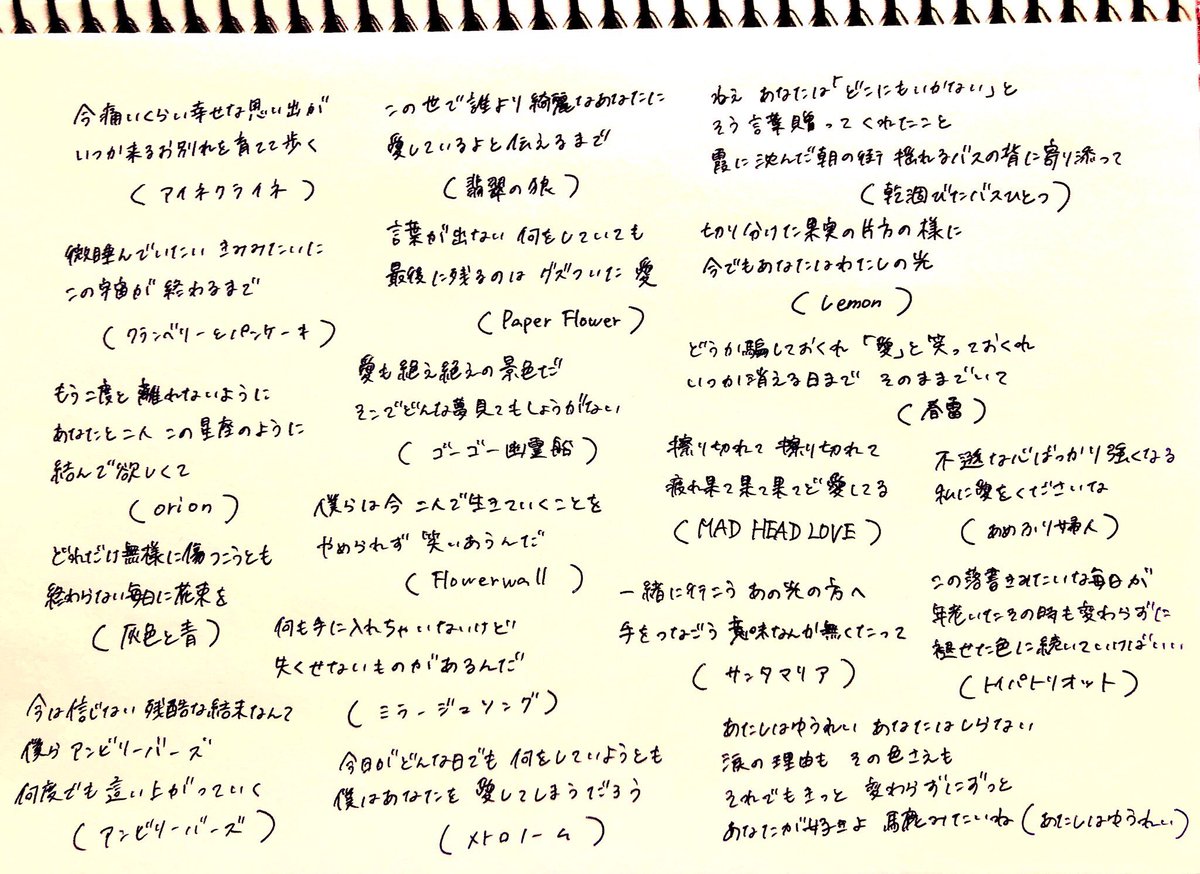 今痛いくらい幸せな思い出が
いつか来るお別れを育てて歩く
(アイネクライネ)
微睡んでいたい きみみたいに
この宇宙が終わるまで
(クランベリーとパンケーキ)
もう二度と離れないように
あなたと二人 この星座のように
結んで欲しくて
(orion)
どれだけ無様に傷つこうとも
終わらない毎日に花束を
(灰色と青)
今は信じない 残酷な結末なんて
僕らアンビリーバーズ
何度でも這い上がっていく
(アンビリーバーズ)
この世で誰より綺麗なあなたに
愛しているよと伝えるまで
(翡翠の狼)
言葉が出ない 何をしていても
最後に残るのは グズついた愛
(Paper Flower)
愛も絶え絶えの景色だ
そこでどんな夢見てもしょうがない
(ゴーゴー幽霊船)
僕らは今 二人で生きていくことを
やめられず 笑いあうんだ
(Flowerwall)
何も手に入れちゃいないけど
失くせないものがあるんだ
(ミラージュソング)
今日がどんな日でも 何をしていようとも
僕はあなたを 愛してしまうだろう
(メトロノーム)
ねえ あなたは「どこにもいかない」と
そう言葉贈ってくれたこと
霞に沈んだ朝の街 揺れるバスの背に寄り添って
(乾涸びたバスひとつ)
切り分けた果実の片方の様に
今でもあなたはわたしの光
(Lemon)
どうか騙しておくれ 「愛」と笑っておくれ
いつか消える日まで そのままでいて
(春雷)
擦り切れて 擦り切れて
疲れ果て果て果てど 愛してる
(MAD HEAD LOVE)
不遜な心ばっかり強くなる
私に愛をくださいな
(あめふり婦人)
一緒に行こう あの光の方へ
手をつなごう 意味なんか無くたって
(サンタマリア)
この落書きみたいな毎日が
年老いたその時も変わらずに
褪せた色に続いていけばいい
(トイパトリオット)
あたしはゆうれい あなたはしらない
涙の理由も その色さえも
それでもきっと 変わらずにずっと
あなたが好きよ 馬鹿みたいね(あたしはゆうれい)